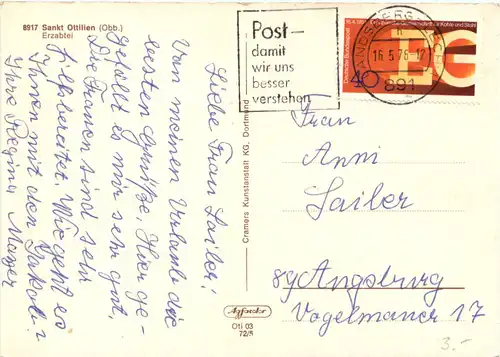 8917 Sankt Ottilien (Obb.)
Erzabtei
Liebe Frau Sailer!
Von meinen Urlaub die
besten Grüße. Hier ge-
fällt es mir sehr gut,
Die Frauen sind sehr
hilfsbereitet. Wie geht es
Ihnen mit den
Ihre Regina Mayer
Cramers Kunstanstalt KG, Dortmund
Oti 03
72/5
Post-
damit
wir uns
besser
verstehen
16.5.76-12
891
40
Frau
Anni
Sailer
89 Augsburg
Vogelmauer 17
3.-